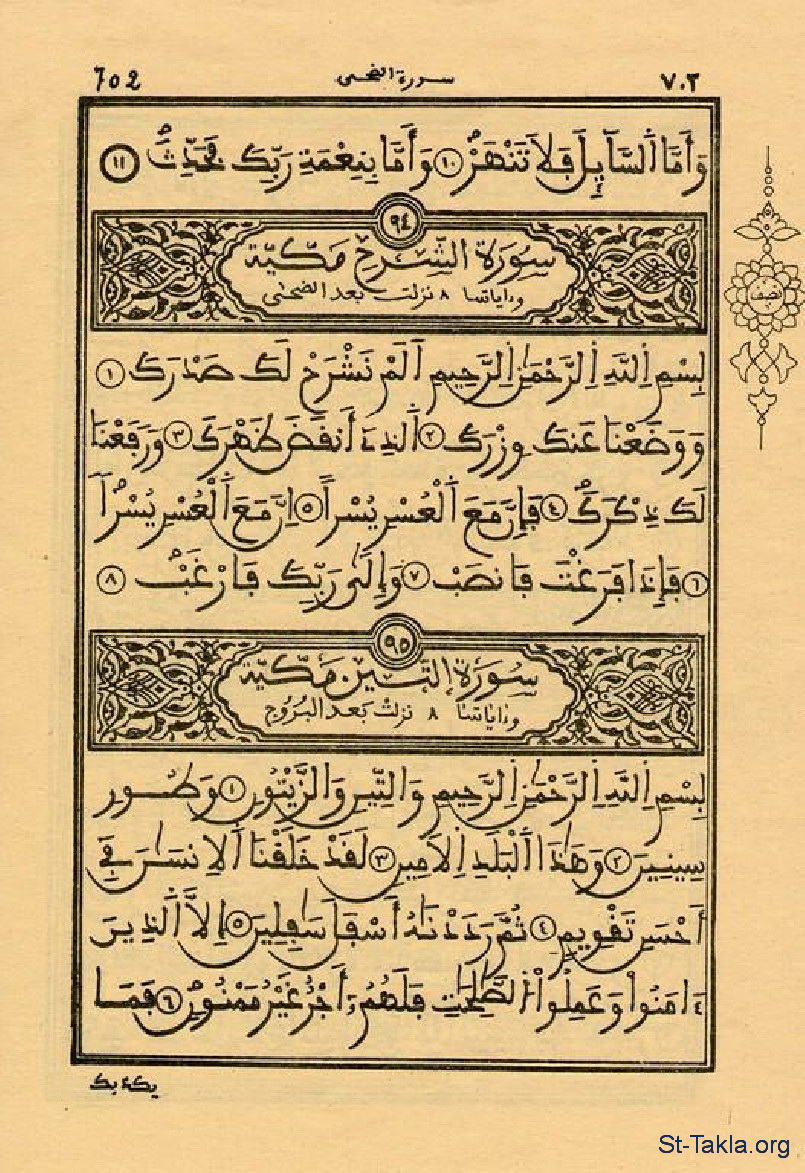 ٧٠٢ سورة الضحى 702
وَأَمَّا اَلسَّآيِلَ فَلاَ تَنْهَرْ ١٠ وَأَمَّا بِنِعْمَةِ رَبِّكَ فَحَدِّثْ ١١
٩٤
سُورَة الشَّرْحِ مَكِّيَّة
وءاياتها ٨ نزلت بعد الضحى
نصف
بِسْمِ اِللَّهِ اِلرَّحْمَٰنِ اِلرَّحِيمِ اَلَمْ نَشْرَحْ لَكَ صَدْرَكَ ١
وَوَضَعْنَا عَنكَ وِزْرَكَ ٢ اَلذِےٓ أَنقَضَ ظَهْرَكَ ٣ وَرَفَعْنَا
لَكَ ذِكْرَكَ ٤ فَإِنَّ مَعَ اَلْعُسْرِ يُسْراً ٥ اِنَّ مَعَ اَلْعُسْرِ يُسْراً
٦ فَإِذَا فَرَغْتَ فَانصَبْ ٧ وَإِلَىٰ رَبِّكَ فَارْغَبْ ٨
٩٥
سُورَة التِّين مَكِّيَّة
وءاياتها ٨ نزلت بعد البُرُوج
بِسْمِ اِللَّهِ اِلرَّحْمَٰنِ اِلرَّحِيمِ وَالتِّينِ وَالزَّيْتُونِ ١ وَطُورِ
سِينِينَ ٢ وَهَٰذَا اَلْبَلَدِ اِلَامِينِ ٣ لَقَدْ خَلَقْنَا اَلِانسَٰنَ فِے
أَحْسَنِ تَقْوِيمٍ ٤ ثُمَّ رَدَدْنَٰهُ أَسْفَلَ سَٰفِلِينَ ٥ إِلاَّ اَلذِينَ
ءَامَنُواْ وَعَمِلُواْ اُلصَّٰلِحَٰتِ فَلَهُمُۥٓ أَجْرٌ غَيْرُ مَمْنُونٍ ٦ فَمَا
يكذبك
St-Takla.org